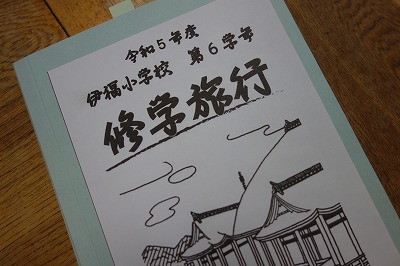 令和5年度
伊福小学校 第6学年
修学旅行